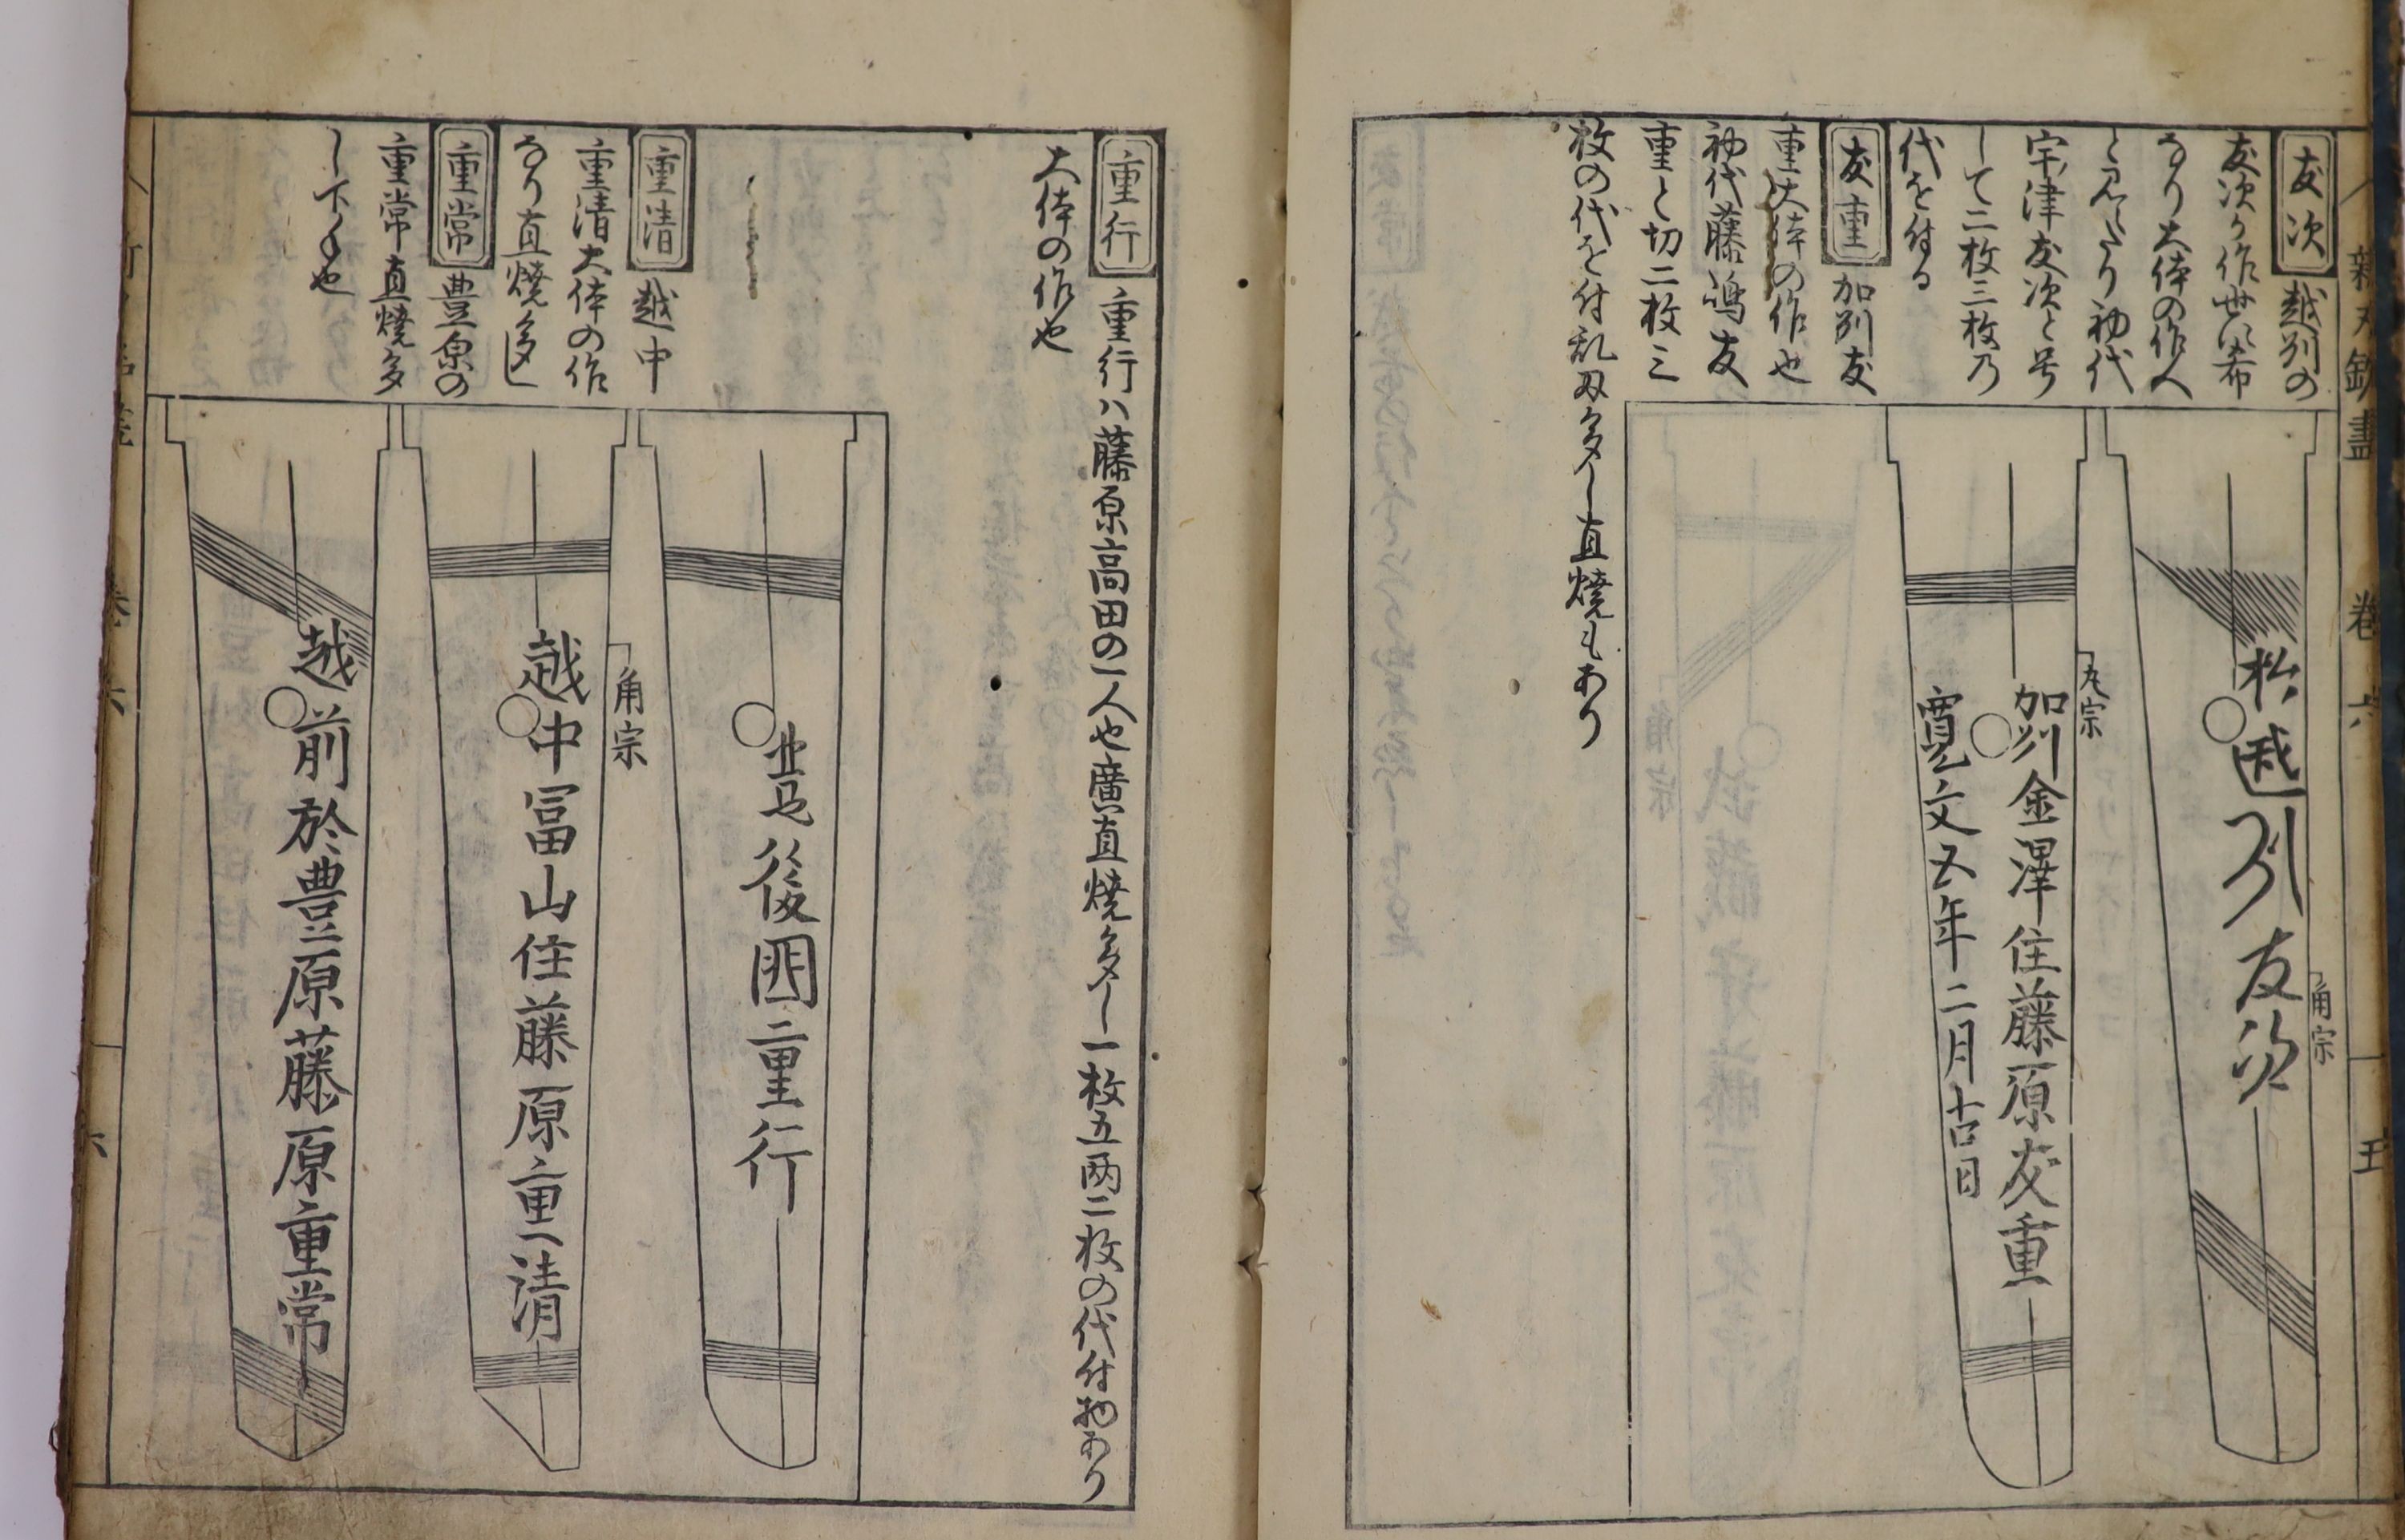 友次 越州の
友次が作世に希
なり大体の作人
と見へたり初代
宇津友次と号
して二枚三枚乃
代を付る
友重 加州友
重大体の作也
初代藤嶋友
重と切二枚三
枚の代を付乱刄多し直焼もあり
松
越州友次
角宗
加州金澤住藤原友重
寛文五年二月吉日
丸宗
巻六
五
重行 重行ハ藤原高田の一人也廣直焼多し一枚五両二枚の代付物あり
大体の作也
重清 越中
重清大体の作
なり直焼多し
重常 豊原の
重常直焼多
し下く也
豊後国重行
越中冨山住藤原重清
角宗
越前於豊原藤原重常
巻六
六